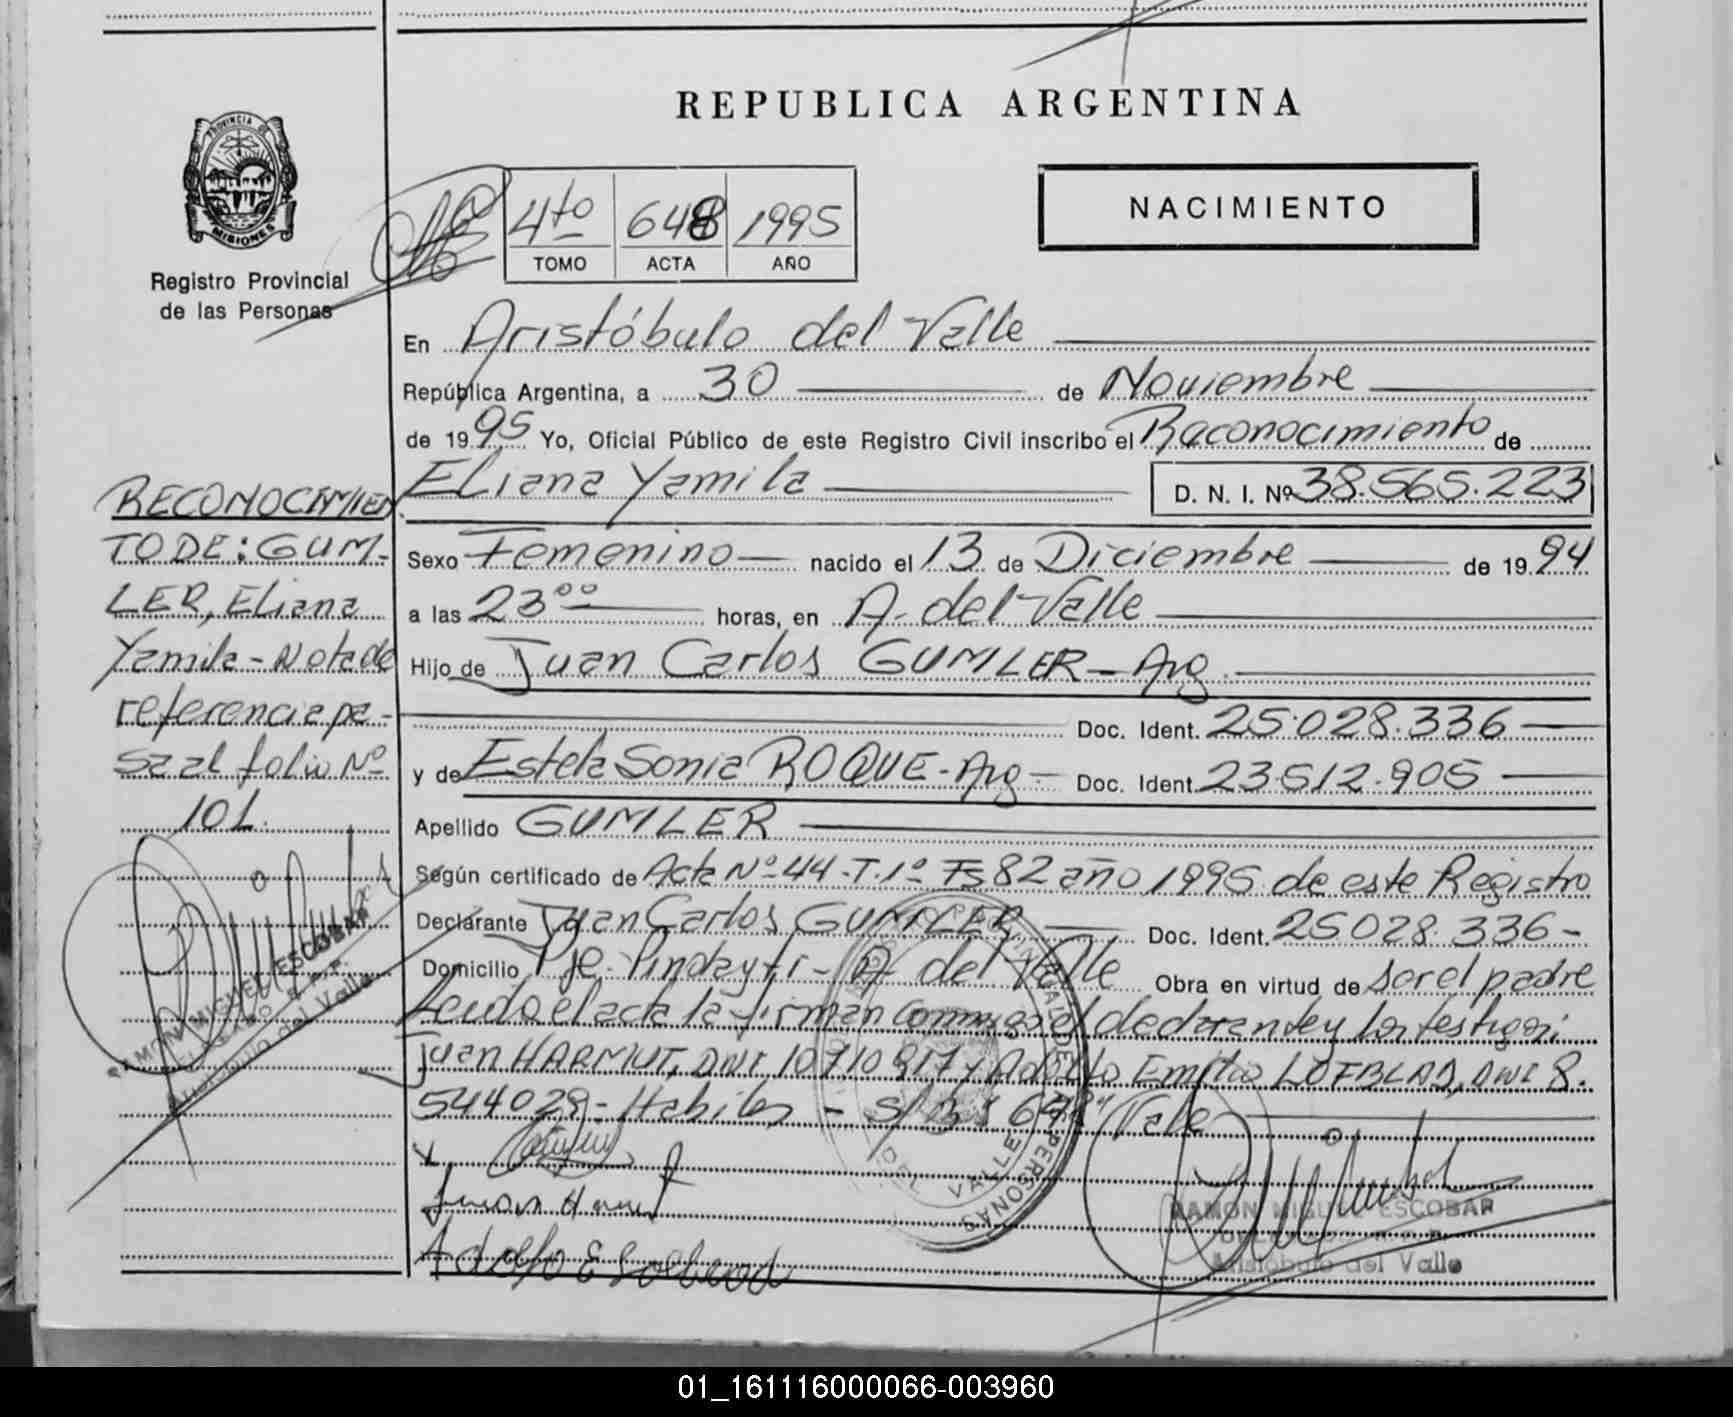 REPUBLICA ARGENTINA
PROVINCIA DE
MISIONES
Registro Provincial
de las Personas
4to 648 1995
TOMO ACTA AÑO
NACIMIENTO
En Aristóbulo del Valle
República Argentina, a 30 de Noviembre
de 1995 Yo, Oficial Público de este Registro Civil inscribo el Reconocimiento de
Eliana Yamila D. N. I. Nº 38.565.223
Sexo Femenino nacido el 13 de Diciembre de 1994
a las 23 00 horas, en A. del Valle
Hijo de Juan Carlos GUMLER - Arg.
Doc. Ident. 25.028.336
y de Estela Sonia ROQUE - Arg - Doc. Ident. 23.512.905
Apellido GUMLER
Según certificado de Acta Nº 44 - T. 1º Fs 82 año 1995 de este Registro
Declarante Juan Carlos GUMLER Doc. Ident. 25.028.336 -
Domicilio Pje. Pindayti - A. del Valle Obra en virtud de ser el padre
Leida el acta la firman conmigo el declarante y los testigos:
Juan HARMUT, DNI 10710917 y Adolfo Emilio DNI 8.
544029 - Habiles - Vale
RECONOCIMIEN
TO DE: GUM-
LER, Eliana
Yamila - Nota de
referencia pa-
sa al folio Nº
101.
RAMON MIGUEL ESCOBAR
Aristóbulo del Valle
DEL VALLE
PERSONAS
Juan
Adolfo E
RAMON MIGUEL ESCOBAR
Aristóbulo del Valle
01_161116000066-003960